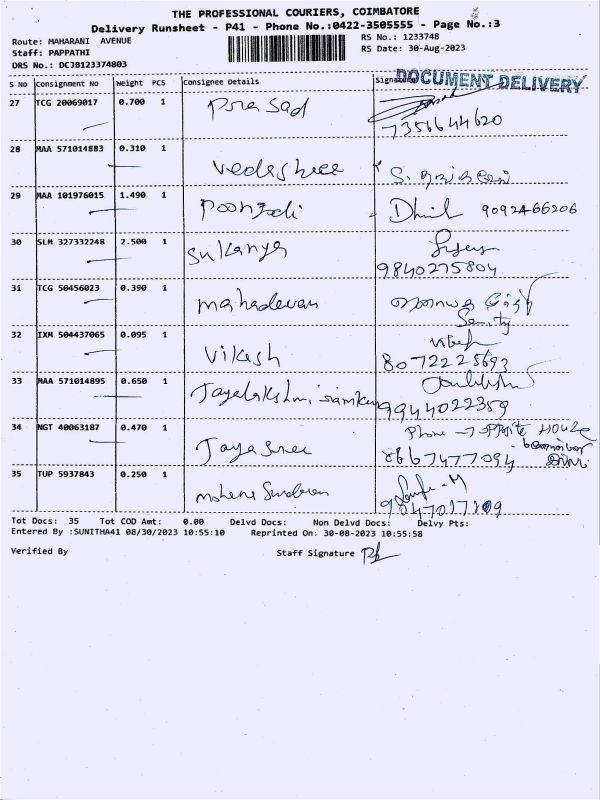 THE PROFESSIONAL COURIERS, COIMBATORE
Delivery Runsheet - P41 - Phone No.:0422-3505555 - Page No.:3
Route: MAHARANI AVENUE
RS No.: 1233748
Staff: PAPPATHI
RS Date: 30-Aug-2023
DRS No.: DCJB123374803
S NO Consignment No Weight PCS Consignee Details Signature
DOCUMENT DELIVERY
27 TCG 20069017 0.700 1 Prasad
7356644620
28 MAA 571014883 0.310 1 Vedeshree
29 MAA 101976015 1.490 1 Poongodi 9092466206
30 SLM 327332248 2.500 1 Sukanya
9840275804
31 TCG 50456023 0.390 1 mahadevan
32 IXM 504437065 0.095 1 Vikesh
8072225693
33 MAA 571014895 0.650 1
9944022359
34 NGT 40063187 0.470 1 Jayasree Phone → opposite House
8667477094
35 TUP 5937843 0.250 1
Tot Docs: 35 Tot COD Amt: 0.00 Delvd Docs: Non Delvd Docs: Delvy Pts:
Entered By :SUNITHA41 08/30/2023 10:55:10 Reprinted On: 30-08-2023 10:55:58
Verified By Staff Signature